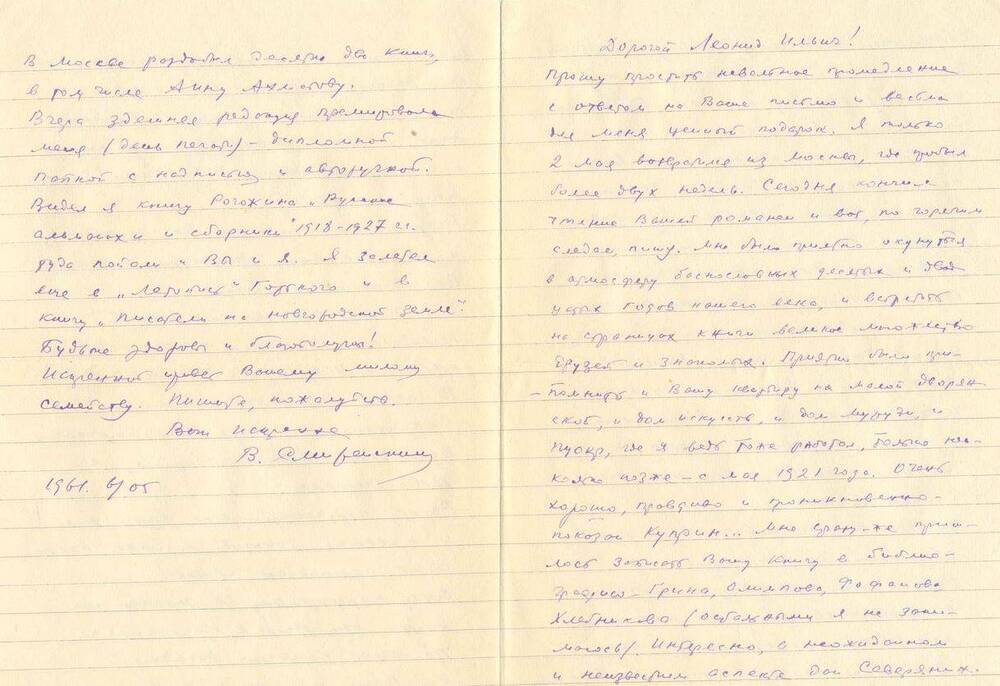 Дорогой Леонид Ильич!
Прошу простить невольное промедление
с ответом на Ваше письмо и весьма
для меня ценный подарок. Я только
2 мая возвратился из Москвы, где пробыл
более двух недель. Сегодня кончил
чтение Вашей романеи и вот, по горячим
следам, пишу. Мне было приятно окунуться
в атмосферу баснословных десятых и двад-
цатых годов нашего века, и встретить
на страницах книги великое множество
друзей и знакомых. Приятно было при-
помнить и Вашу квартиру на малой дворян-
ской, и дом искусств, и дом Мурузи, и
где я ведь тоже работал, только нес-
колько позже – с мая 1921 года. Очень
хорошо, правдиво и проникновенно
показан Куприн... Мне сразу-же приш-
лось записать Вашу книгу в библио-
графию Грина, Олимпова, Фофанова
Хлебникова (остальными я не зани-
маюсь). Интересно, в неожиданном
и неизвестном аспекте дан Северянин.
В Москве раздобыл десятка два книг,
в том числе Анну Ахматову.
Вчера здешняя редакция премировала
меня (день печати) – дипломной
папкой с надписью и авторучкой.
Видел я книгу Рогожина „Русские
альманахи и сборники" 1918-1927 г.г.
туда попали и Вы и я. Я залетел
еще в „Летопись" Горького и в
книгу „Писатели на новгородской земле".
Будьте здоровы и благополучны!
Искренний привет Вашему милому
семейству. Пишите, пожалуйста.
Ваш искренне
В. Смиренский
1961. 6/05